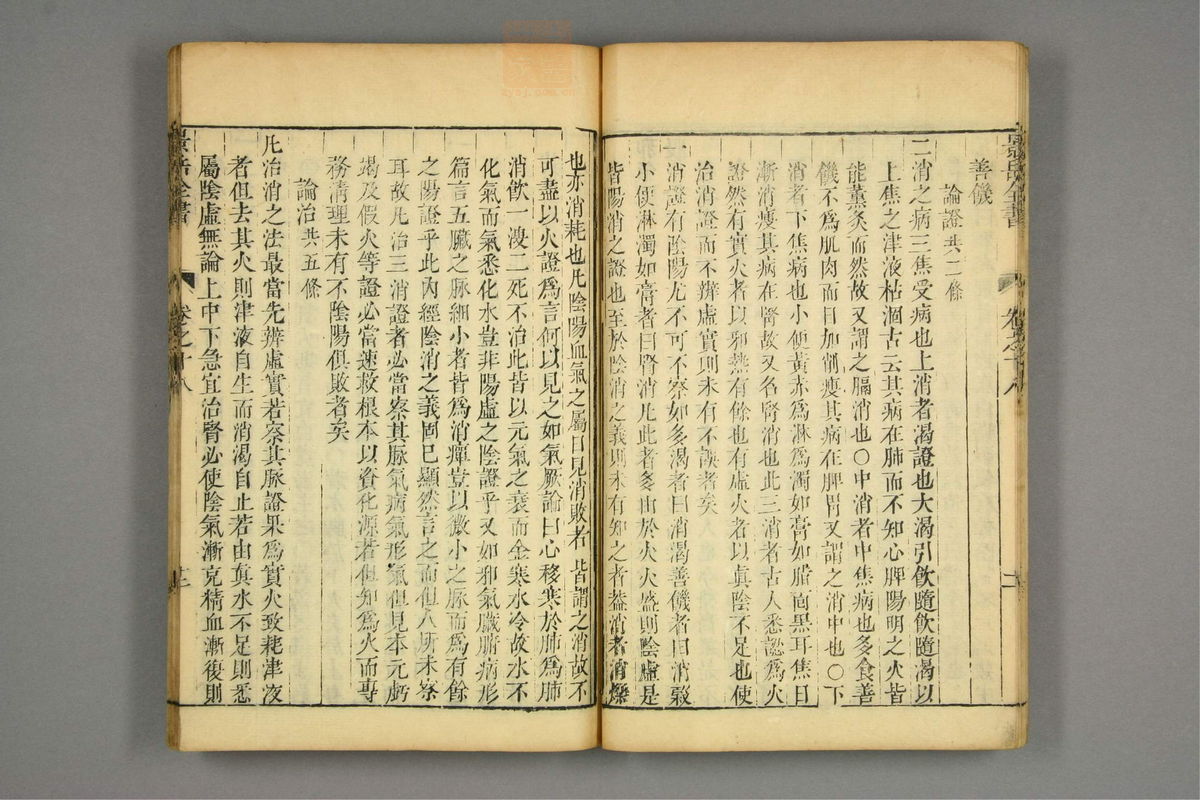 景岳全書 卷之十八
善饑
論證共二條
三消之病三焦受病也上消者渴證也大渴引飲隨飲隨渴以
上焦之津液枯涸古云其病在肺而不知心脾陽明之火皆
能薰炙而然故又謂之膈消也○中消者中焦病也多食善
饑不爲肌肉而日加削瘦其病在脾胃又謂之消中也○下
消者下焦病也小便黃赤爲淋爲濁如膏如脂面黑耳焦日
漸消瘦其病在腎故又名腎消也此三消者古人悉認爲火
證然有實火者以邪熱有餘也有虛火者以眞陰不足也使
治消證而不辨虛實則未有不誤者矣
一消證有陰陽尤不可不察如多渴者曰消渴善饑者曰消穀
小便淋濁如膏者曰腎消凡此者多由於火火盛則陰虛是
皆陽消之證也至於陰消之義則未有知之者蓋消者消爍
也亦消耗也凡陰陽血氣之屬日見消敗者皆謂之消故不
可盡以火證爲言何以見之如氣厥論曰心移寒於肺爲肺
消飲一溲二死不治此皆以元氣之衰而金寒水冷故水不
化氣而氣悉化水豈非陽虛之陰證乎又如邪氣臟腑病形
篇言五臟之脉細小者皆爲消癉豈以微小之脉而爲有餘
之陽證乎此內經陰消之義固已顯然言之而但人所未察
耳故凡治三消證者必當察其脉氣病氣形氣但見本元虧
竭及假火等證必當速救根本以資化源若但知爲火而專
務清理未有不陰陽俱敗者矣
論治共五條
凡治消之法最當先辨虛實若察其脉證果爲實火致耗津液
者但去其火則津液自生而消渴自止若由眞水不足則悉
屬陰虛無論上中下急宜治腎必使陰氣漸充精血漸復則
景岳全書 卷之十八